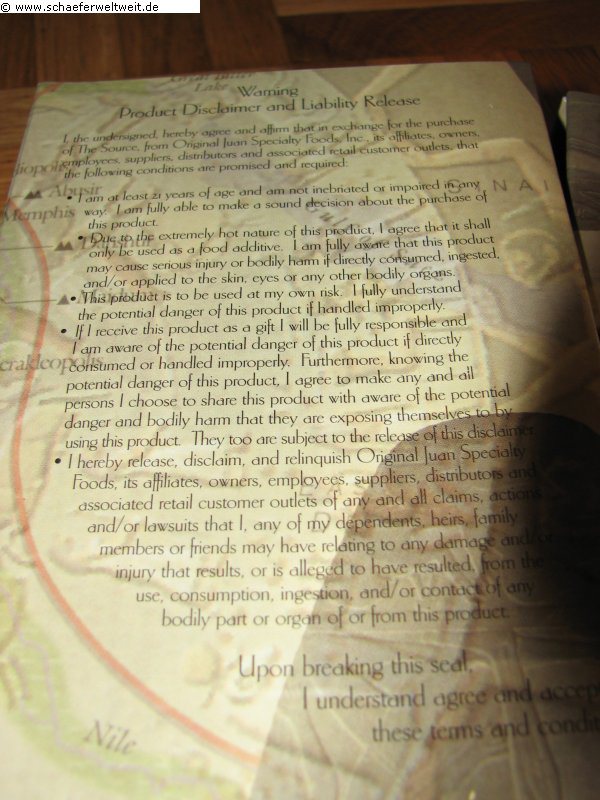 © www.schaeferweltweit.de
Lake
Warning
Product Disclaimer and Liability Release
I, the undersigned, hereby agree and affirm that in exchange for the purchase
of The Source, from Original Juan Specialty Foods, Inc., its affiliates, owners,
employees, suppliers, distributors and associated retail customer outlets, that
the following conditions are promised and required:
Abusir
Memphis
NAI
• I am at least 21 years of age and am not inebriated or impaired in any
way. I am fully able to make a sound decision about the purchase of
this product.
• Due to the extremely hot nature of this product, I agree that it shall
only be used as a food additive. I am fully aware that this product
may cause serious injury or bodily harm if directly consumed, ingested,
and/or applied to the skin, eyes or any other bodily organs.
• This product is to be used at my own risk. I fully understand
the potential danger of this product if handled improperly.
• If I receive this product as a gift I will be fully responsible and
I am aware of the potential danger of this product if directly
consumed or handled improperly. Furthermore, knowing the
erakleopolis
potential danger of this product, I agree to make any and all
persons I choose to share this product with aware of the potential
danger and bodily harm that they are exposing themselves to by
using this product. They too are subject to the release of this disclaimer.
• I hereby release, disclaim, and relinquish Original Juan Specialty
Foods, its affiliates, owners, employees, suppliers, distributors and
associated retail customer outlets of any and all claims, actions
and/or lawsuits that I, any of my dependents, heirs, family
members or friends may have relating to any damage and/or
injury that results, or is alleged to have resulted, from the
use, consumption, ingestion, and/or contact of any
bodily part or organ of or from this product.
Upon breaking this seal,
I understand agree and accept
these terms and condit
Nile